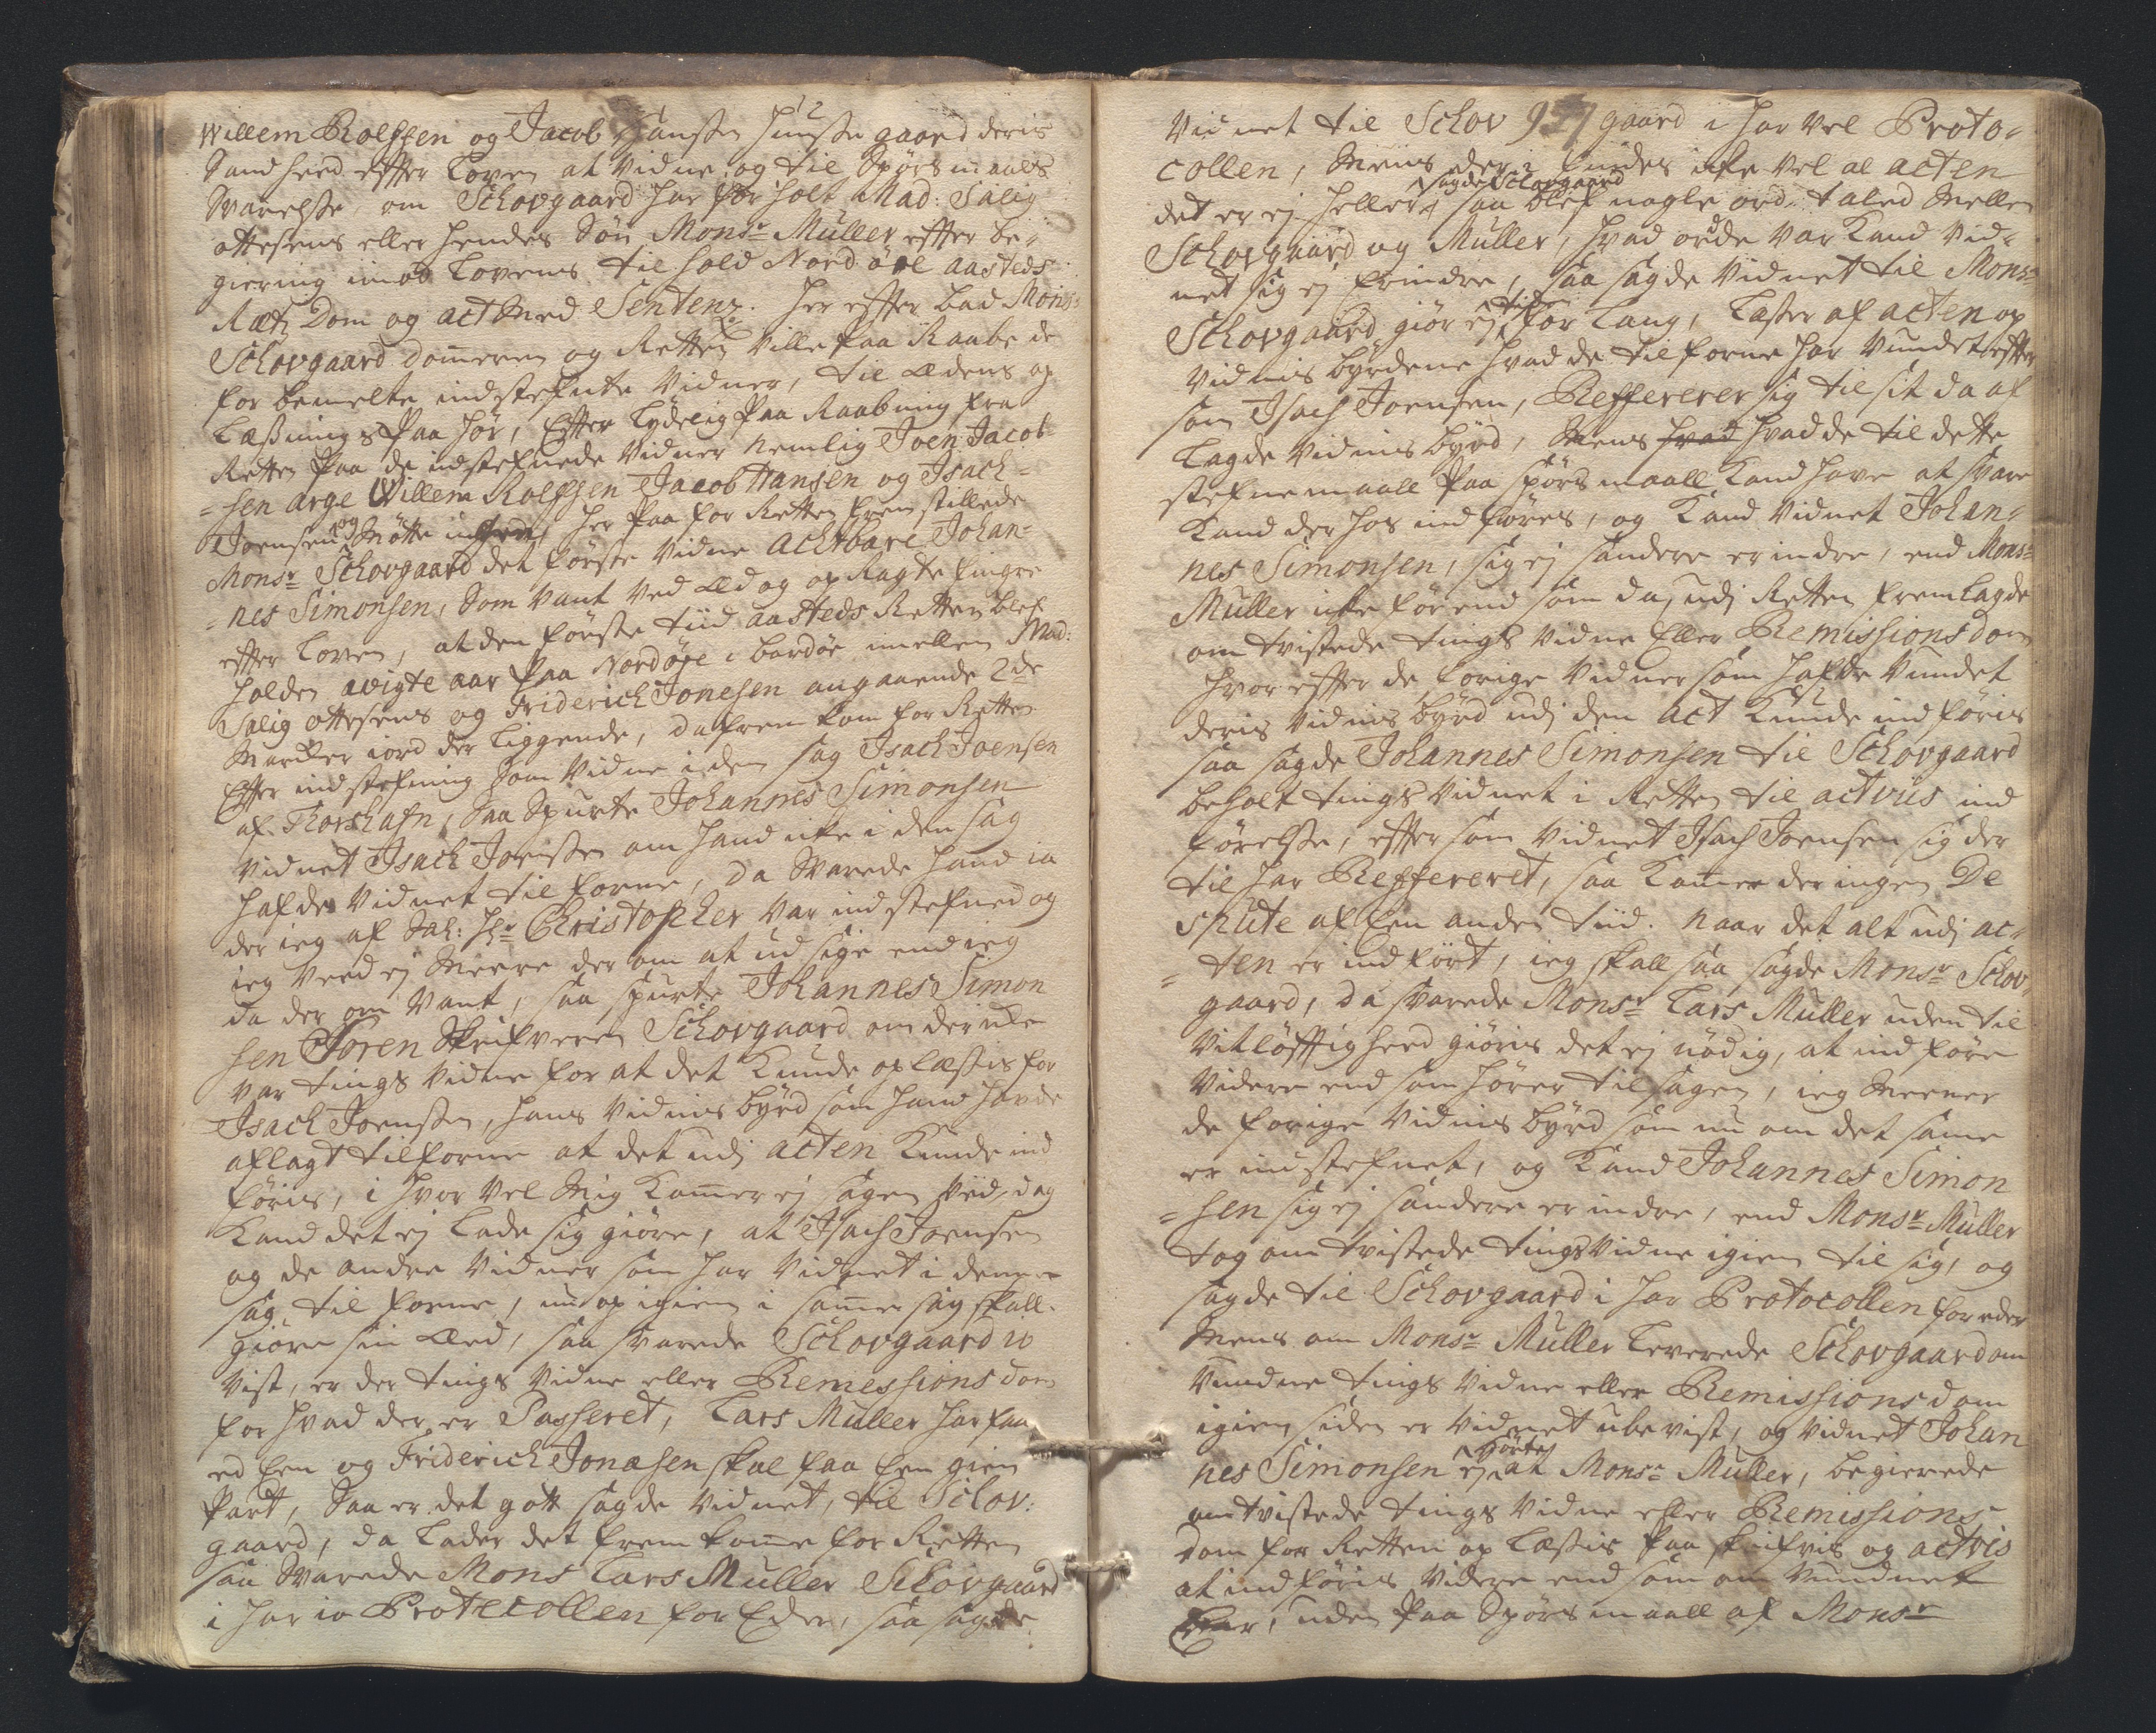 Willem Rolfsen og Jacob Hansen Huusse gaard deris
Sandhed effter Loven at Vidne, og til Spørsmaals
Svarelsse, om Schovgaard har for holt Mad: Salig
ottesens eller hendes Søn Monsr Müller effter be-
giering imod Lovens til hold Nordøre aasteds
Rætz Dom og act med Sentenz. Her effter bad Monsr
Schovgaard Domeren og Retten ville paa Raabe de
for bemelte indstefnte Vidner, til Ædens op
Læsnings paa hør, Effter lydelig paa Raabning fra
Retten paa de indstefnede Vidner nemlig Joen Jacob-
=sen arge Willem Rolfsen Jacob Hansen og Isach=
Joensen og Møtte
her paa for Retten frem stillede
Monsr Schovgaard det første Vidne achtbare Johan-
=nes Simonsen, Som vant ved Æd og op Ragte fingre
effter Loven, at den første tiid aasteds Retten blef
holden avigte aar paa Nordøre i bordøe imellem Mad:
Salig ottesens og Friderich Jonesen angaaende 2de
Marcker iord der liggende, da frem kom for Retten
Effter indstefning som Vidne i den sag Isach Joensen
af Thorshafn, Saa Spurte Johannes Simonsen
Vidnet Isach Joensen om hand icke i den sag
hafde Vidnet til forne, da Svarede hand ia
der ieg af Sal: Hr Christopher var indstefned og
ieg veed ej meere der om at udsige end ieg
da der om vant, saa spurte Johannes Simon
sen Soren Skrifveren Schovgaard om der icke
var tings vidne for at det kunde op læsis for
Isach Joensen, hans Vidnis byrd som hand havde
aflagt tilforne at det udj acten kunde ind
føris, i hvor vel mig kommer ej sagen ved, dog
kand det ej lade sig giøre, at Isach Joensen
og de andre Vidner som har Vidnet i denne
sag til forne, nu op igien i same sag skall
giøre sin Æed, saa svarede Schovgaard io
vist, er der tings vidne eller Remissions dom
for hvad der er Passeret, Lars Müller har faa
ed een og Friderich Jonæsen skal faa een gien
part, Saa er det gott sagde Vidnet, til Schov:
gaard, da lader det frem komme for Retten
saa Svarede Mons Lars Müller Schovgaard
i har io Protecollen for Eder, saa sagde
Vidnet til Schov 957 gaard i har vel Proto-
collen, mens der i findes icke vel al acten
det er ej heller sagde Schovgaard saa blef nogle ord taled mellem
Schovgaard og Müller, hvad ordde var kand Vid-
net sig ej Erindre, saa sagde Vidnet til Monsr
Schovgaard giør ej tiden for lang, læser af acten op
Vidnis byrdene hvad de til forne har vundet effter
som Isach Joensen, Reffererer sig til sit da af
lagde Vidnis byrd, mens hvad hvad de til dette
stefnemaall paa spørsmaall kand have at svare
kand der hos indføres, og kand Vidnet Johan-
nes Simonsen, sig ej sandere erindre, end Monsr
Müller icke før end som da, udj Retten fremlagde
om tvistede tings Vidne Eller Remissions dom
hvor effter de forige Vidner som hafde vundet
deris Vidnis byrd udj den act kunde indføris
saa sagde Johannes Simonsen til Schovgaard
beholt tings Vidnet i Retten til actvüs ind
førelsse, effter som Vidnet Isach Joensen sig der
til har Reffereret, saa kommer der ingen De
spute af een anden tiid. naar det alt udj ac-
=ten er indført, ieg skall saa sagde Monsr Schov-
gaard, da svarede Monsr Lars Müller uden til
vitløfftighed giøris det ej nødig, at indføre
videre end som hører til sagen, ieg meener
de forige Vidnis byrd som nu om det same
er indstefnet, og kand Johannes Simon
=sen sig ej sandere erindre, end Monsr Müller
tog om tvistede tings Vidne igien til sig, og
sagde til Schovgaard i har Protocollen for eder
mens om Monsr Müller leverede Schovgaard om
vundne tings Vidne eller Remissions dom
igien siden er Vidnet ubevist, og Vidnet Johan
nes Simonsen ej hørte at Monsr Müller, begierede
omtvistede tings Vidne eller Remissions
dom for Retten op læsis paa skrifvis og actvis
at indføris videre end som om vundnet
uden paa Spørsmaall af Monsr